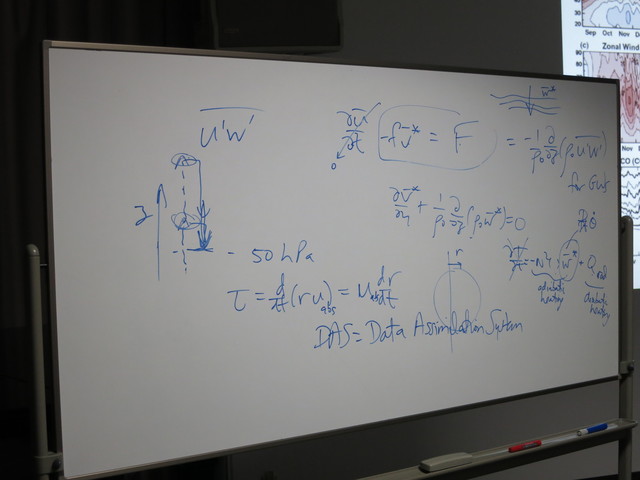 Sep Oct Nov
(c) Zonal Wind
90
70
50
30
w̄*
u'w'
∂ū/∂t - f v̄* = F = -1/ρ₀ ∂/∂z (ρ₀ u'w')
0
for GWs
z
∂v̄*/∂y + 1/ρ₀ ∂/∂z (ρ₀ w̄*) = 0
- 50 hPa
r
= -N² w̄* + Q rad
adiabatic heating
diabatic heating
τ = d/dt (r u)abs = u abs dr/dt
DAS = Data Assimilation System